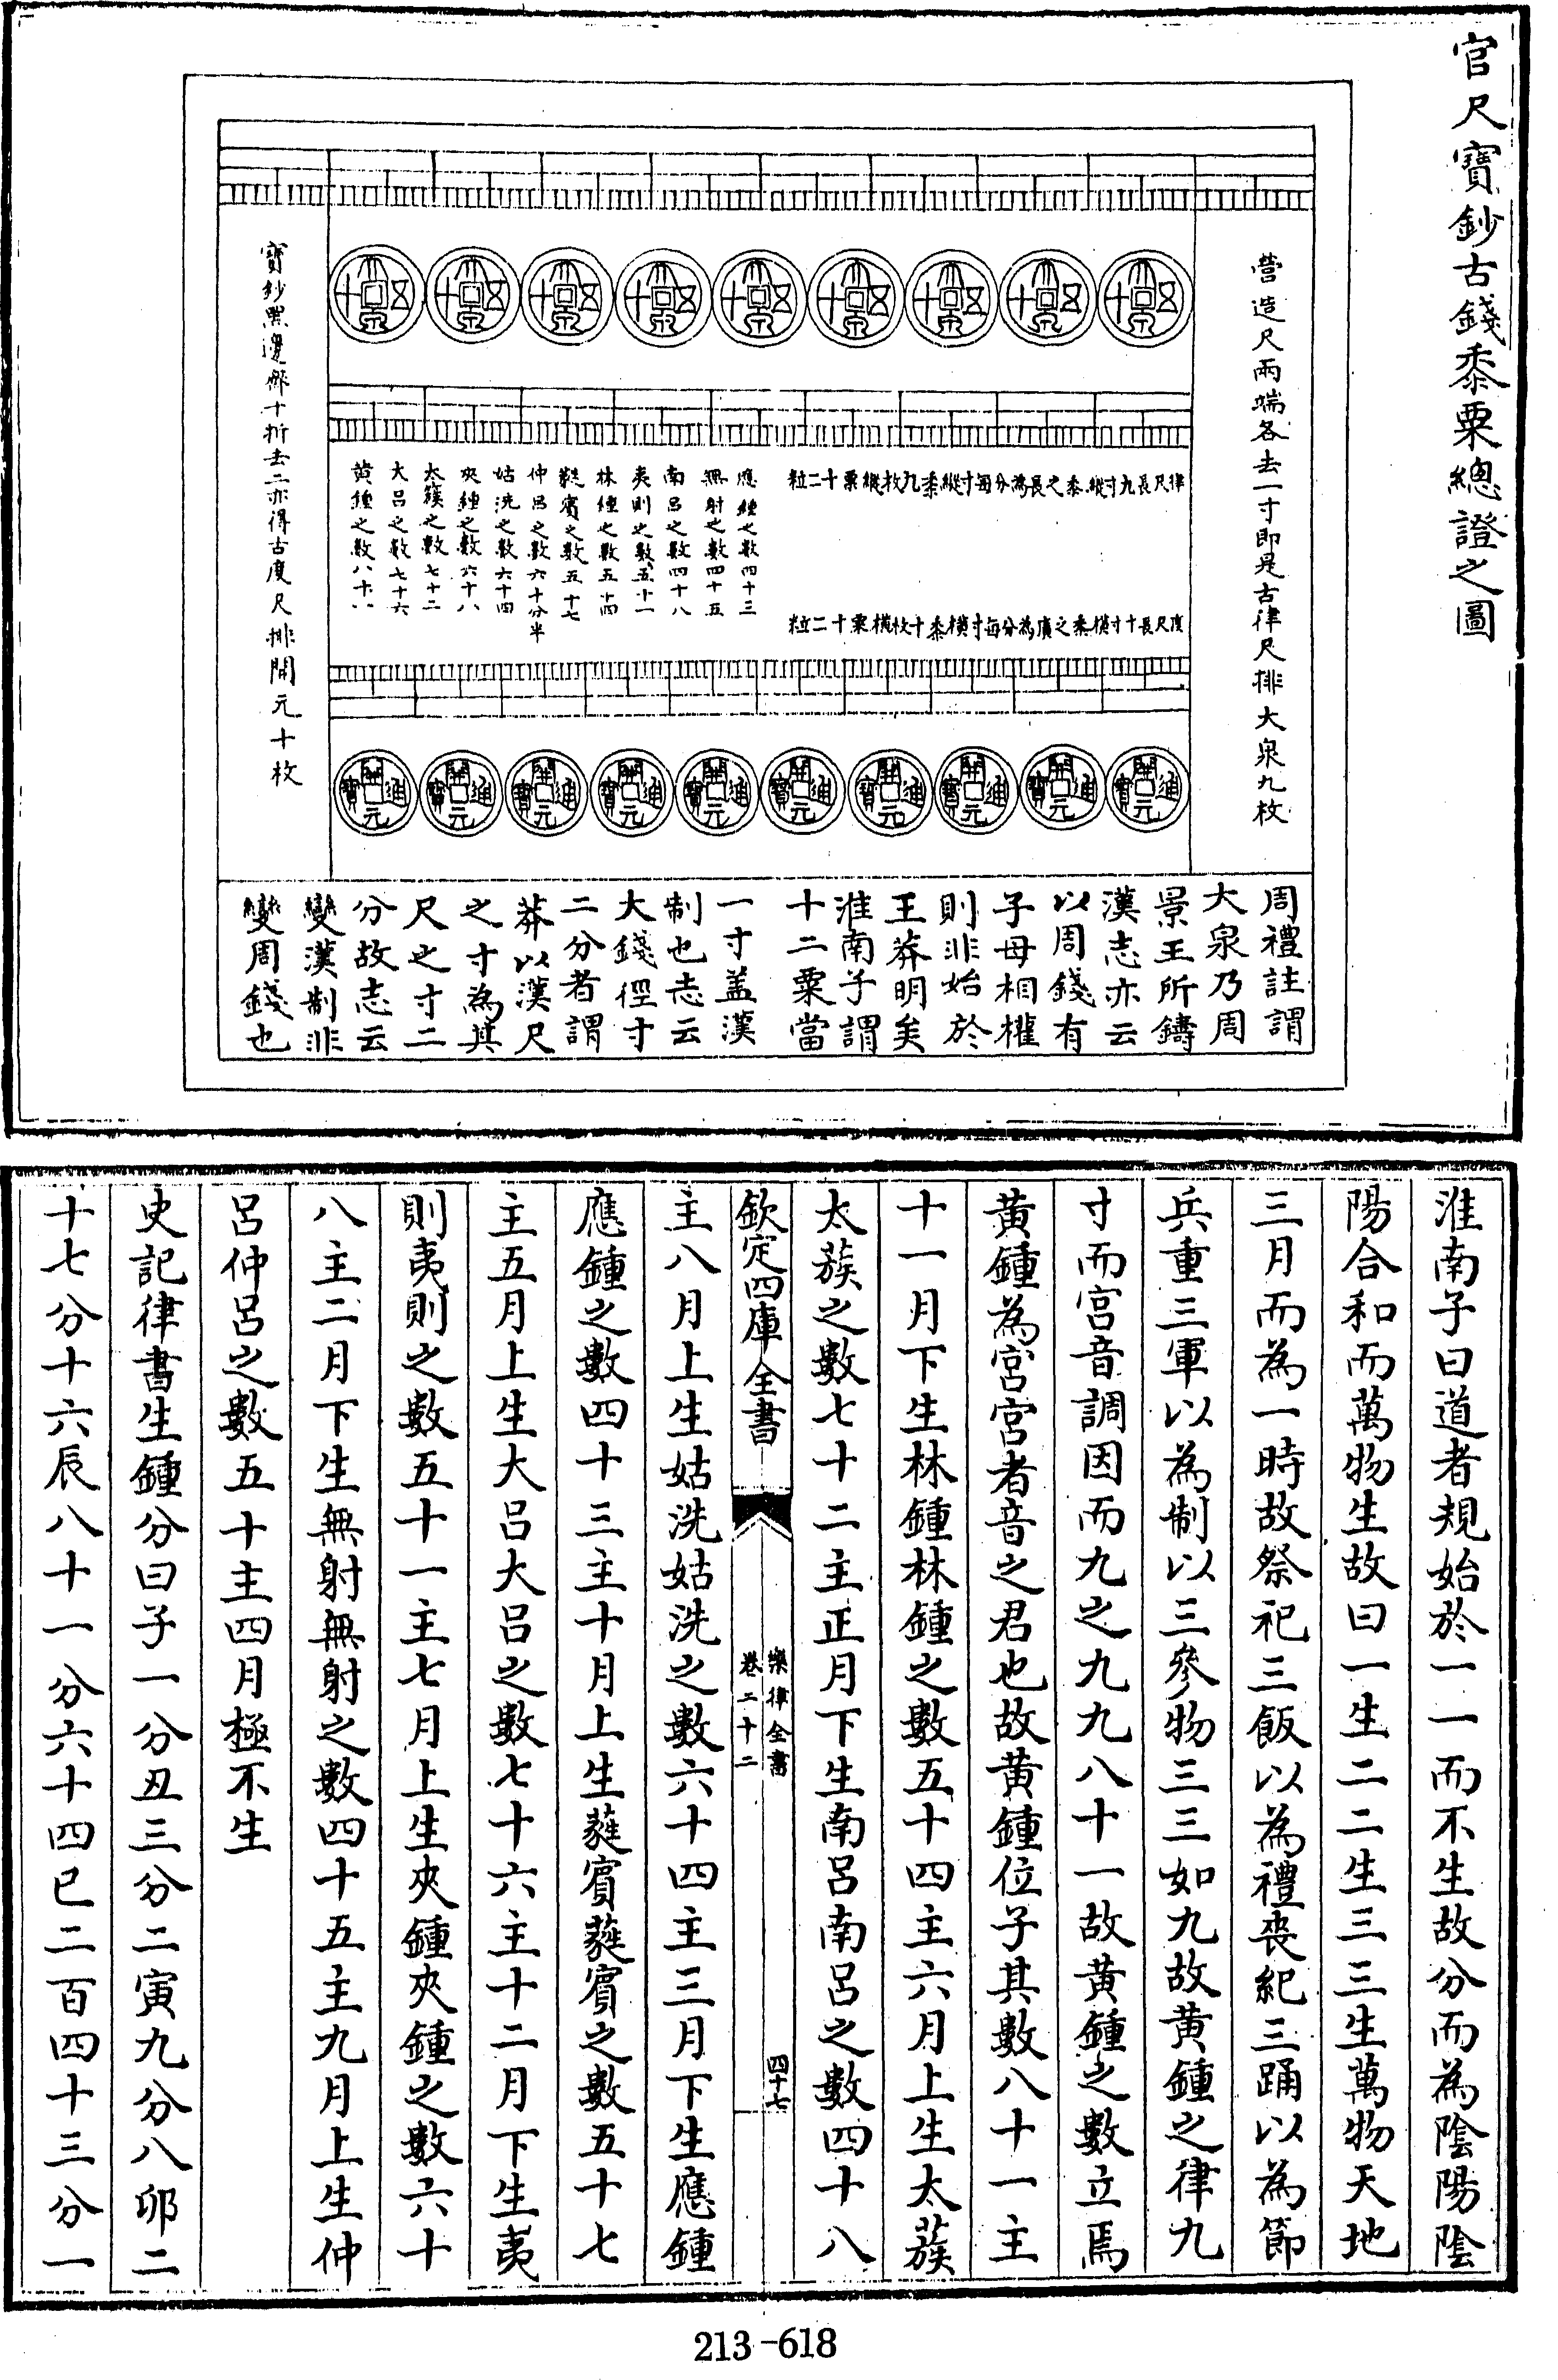 官尺寶鈔古錢黍粟總證之圖
營造尺兩端各去一寸即是古律尺排大泉九枚
大泉五十
大泉五十
大泉五十
大泉五十
大泉五十
大泉五十
大泉五十
大泉五十
大泉五十
律尺長九寸縱黍之長為分每寸縱黍九枚縱粟十二粒
度尺長十寸橫黍之廣為分每寸橫黍十枚橫粟十二粒
應鍾之數四十三
無射之數四十五
南呂之數四十八
夷則之數五十一
林鍾之數五十四
蕤賓之數五十七
仲呂之數六十分半
姑洗之數六十四
夾鍾之數六十八
太簇之數七十二
大呂之數七十六
黃鍾之數八十一
開元通寶
開元通寶
開元通寶
開元通寶
開元通寶
開元通寶
開元通寶
開元通寶
開元通寶
開元通寶
寶鈔黑邊外十折去二亦得古度尺排開元十枚
周禮註謂
大泉乃周
景王所鑄
漢志亦云
以周錢有
子母相權
則非始於
王莽明矣
淮南子謂
十二粟當
一寸盖漢
制也志云
大錢徑寸
二分者謂
莽以漢尺
之寸為其
尺之寸二
分故志云
變漢制非
變周錢也
淮南子曰道者規始於一一而不生故分而為陰陽陰
陽合和而萬物生故曰一生二二生三三生萬物天地
三月而為一時故祭祀三飯以為禮喪紀三踊以為節
兵重三軍以為制以三參物三三如九故黄鍾之律九
寸而宮音調因而九之九九八十一故黄鍾之數立焉
黄鍾為宮宮者音之君也故黄鍾位子其數八十一主
十一月下生林鍾林鍾之數五十四主六月上生太蔟
太蔟之數七十二主正月下生南呂南呂之數四十八
欽定四庫全書
樂律全書
卷二十二
四十七
主八月上生姑洗姑洗之數六十四主三月下生應鍾
應鍾之數四十三主十月上生蕤賓蕤賓之數五十七
主五月上生大呂大呂之數七十六主十二月下生夷
則夷則之數五十一主七月上生夾鍾夾鍾之數六十
八主二月下生無射無射之數四十五主九月上生仲
呂仲呂之數五十主四月極不生
史記律書生鍾分曰子一分丑三分二寅九分八卯二
十七分十六辰八十一分六十四巳二百四十三分一
213-618